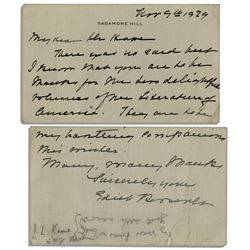 Nov 9th 1929
SAGAMORE HILL
My dear Mr Kane
There was no card but
I know that you are to be
thanked for the two delightful
volumes of new Literature of
America. They are to be
my constant companions
this winter.
Many, many thanks
Sincerely yours
Edith Roosevelt